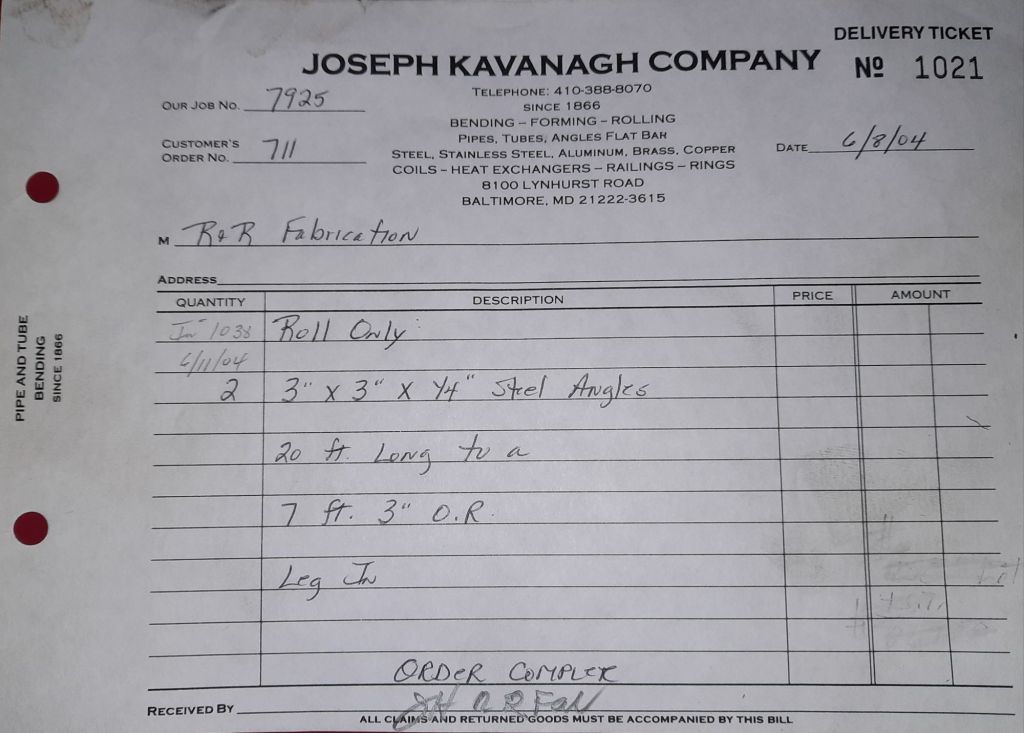 DELIVERY TICKET
JOSEPH KAVANAGH COMPANY
Nº 1021
TELEPHONE: 410-388-8070
SINCE 1866
BENDING – FORMING – ROLLING
PIPES, TUBES, ANGLES FLAT BAR
STEEL, STAINLESS STEEL, ALUMINUM, BRASS, COPPER
COILS – HEAT EXCHANGERS – RAILINGS – RINGS
8100 LYNHURST ROAD
BALTIMORE, MD 21222-3615
OUR JOB NO. 7925
CUSTOMER'S
ORDER NO. 711
DATE 6/8/04
M R&R Fabrication
ADDRESS
QUANTITY DESCRIPTION PRICE AMOUNT
In 1038 Roll Only
6/11/04
2 3" x 3" x 1/4" Steel Angles
20 ft. Long to a
7 ft. 3" O.R.
Leg In
ORDER COMPLETE
RECEIVED BY
ALL CLAIMS AND RETURNED GOODS MUST BE ACCOMPANIED BY THIS BILL
PIPE AND TUBE
BENDING
SINCE 1866